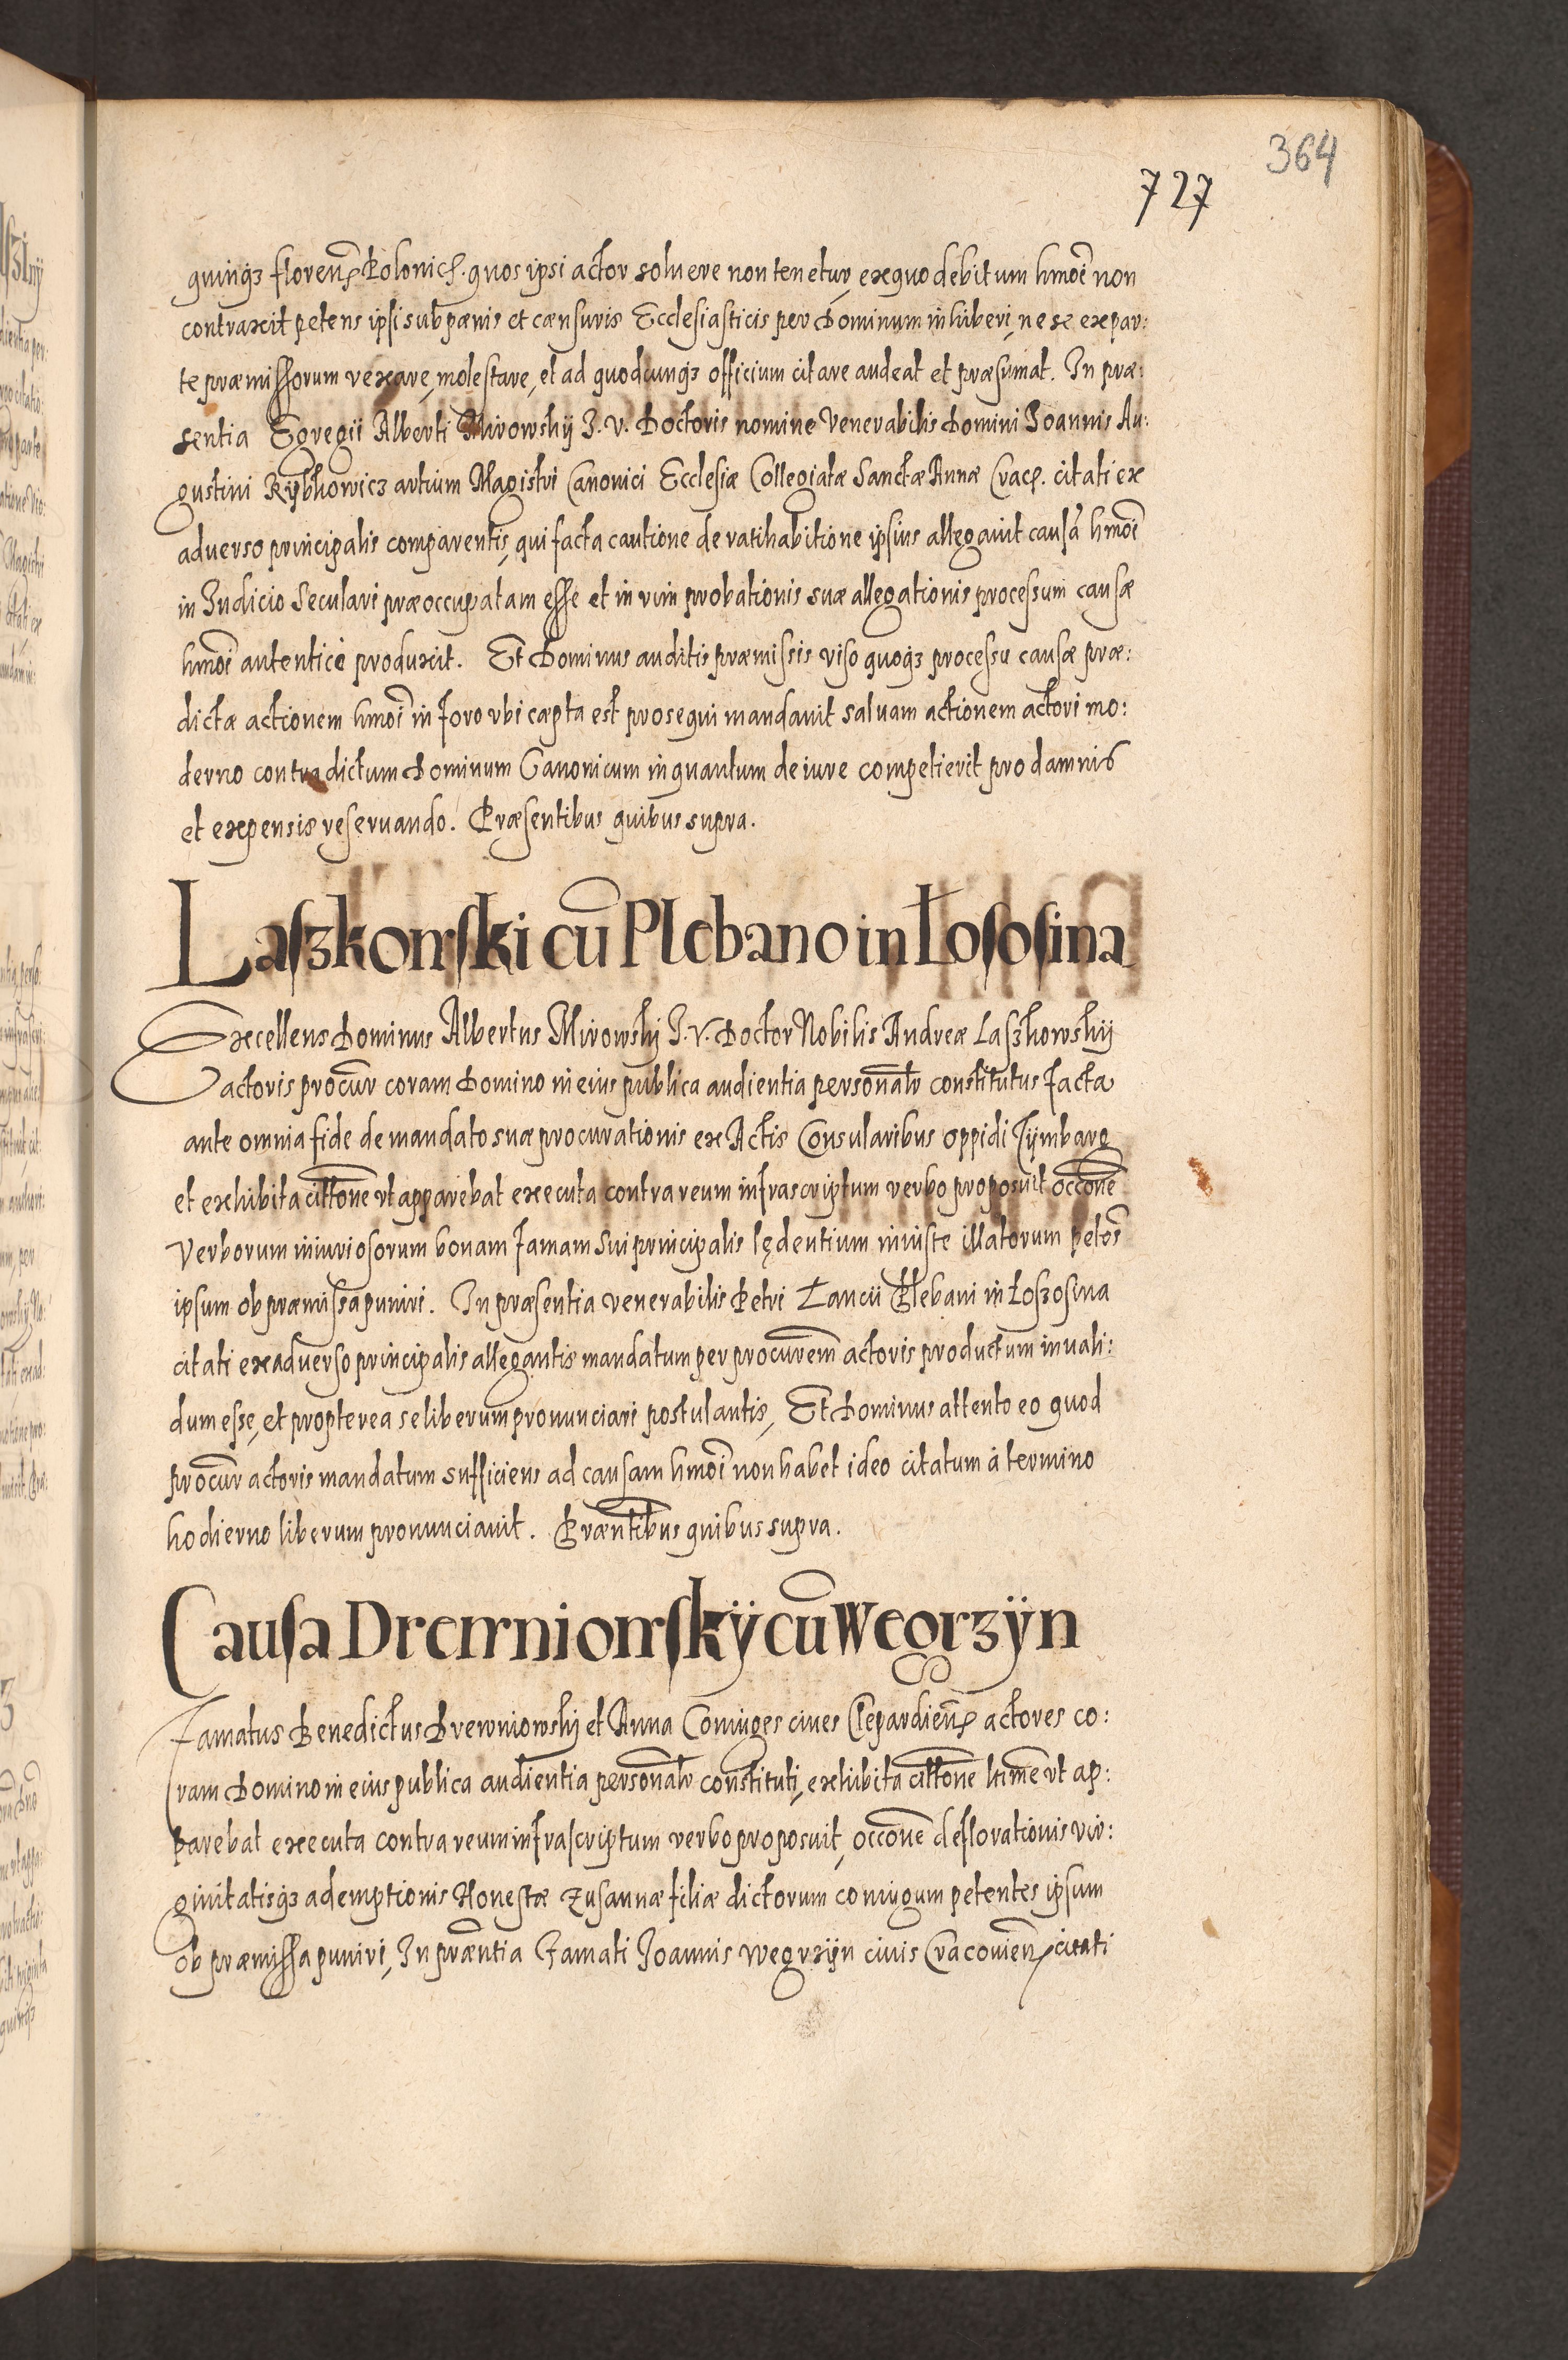 364
727
quinq3 floren̄ Polonic. quos ipsi actor soluere non tenetur, ex quo debitum hmōi non
contraxit petens ipsi sub pænis et cænsuris Ecclesiasticis per Dominum inhiberi, ne se ex par:
te præmissorum vexare, molestare, et ad quodcunq3 officium citare audeat et præsumat. In præ:
sentia Egregii Alberti Mirowskÿ I. V. Doctoris nomine Venerabilis Domini Joannis Au:
gustini Rÿbkowicz artium Magistri Canonici Ecclesiæ Collegiatæ Sanctæ Annæ Crac. citati ex
aduerso principalis comparentis, qui facta cautione de ratihabitione ipsius allegauit causā hmōi
in Judicio Seculari præoccupatam esse et in vim probationis suæ allegationis processum causæ
hmōi autenticè produxit. Et Dominus auditis præmissis viso quoq3 processu causæ præ:
dictæ actionem hmōi in foro vbi cæpta est prosequi mandauit saluam actionem actori mo:
derno contra dictum Dominum Canonicum in quantum de iure competierit pro damnis
et expensis reseruando. Præsentibus quibus supra.
Laszkowski cū Plebano in Łososina
Excellens Dominus Albertus Mirowskÿ I. V. Doctor Nobilis Andreæ Laszkowskÿ
actoris procūr coram Domino in eius publica audientia personalr̄ constitutus facta
ante omnia fide de mandato suæ procurationis ex Actis Consularibus oppidi Tÿmbarg
et exhibita cittōne vt apparebat executa contra reum infrascriptum verbo proposuit occōne
Verborum iniuriosorum bonam famam sui principalis lędentium iniuste illatorum petēs
ipsum ob præmissa puniri. In præsentia venerabilis Petri Łancii Plebani in Łoszosina
citati ex aduerso principalis allegantis mandatum per procurēm actoris productum inuali:
dum esse, et propterea se liberum pronunciari postulantis, Et Dominus attento eo quod
procūr actoris mandatum sufficiens ad causam hmōi non habet ideo citatum à termino
hodierno liberum pronunciauit. Præntibus quibus supra.
Causa Drewniowskÿ cū Wegrzÿn
Famatus Benedictus Drewniowskÿ et Anna Coniuges ciues Clepardien̄ actores co:
ram Domino in eius publica audientia personalr̄ constituti, exhibita cittōne hīme vt ap:
parebat executa contra reum infrascriptum verbo proposuit, occōne deflorationis vir:
ginitatisq3 ademptionis Honestæ Zusannæ filiæ dictorum coniugum petentes ipsum
ob præmissa puniri, In præntia Famati Joannis Wegrzÿn ciuis Cracouien̄ citati